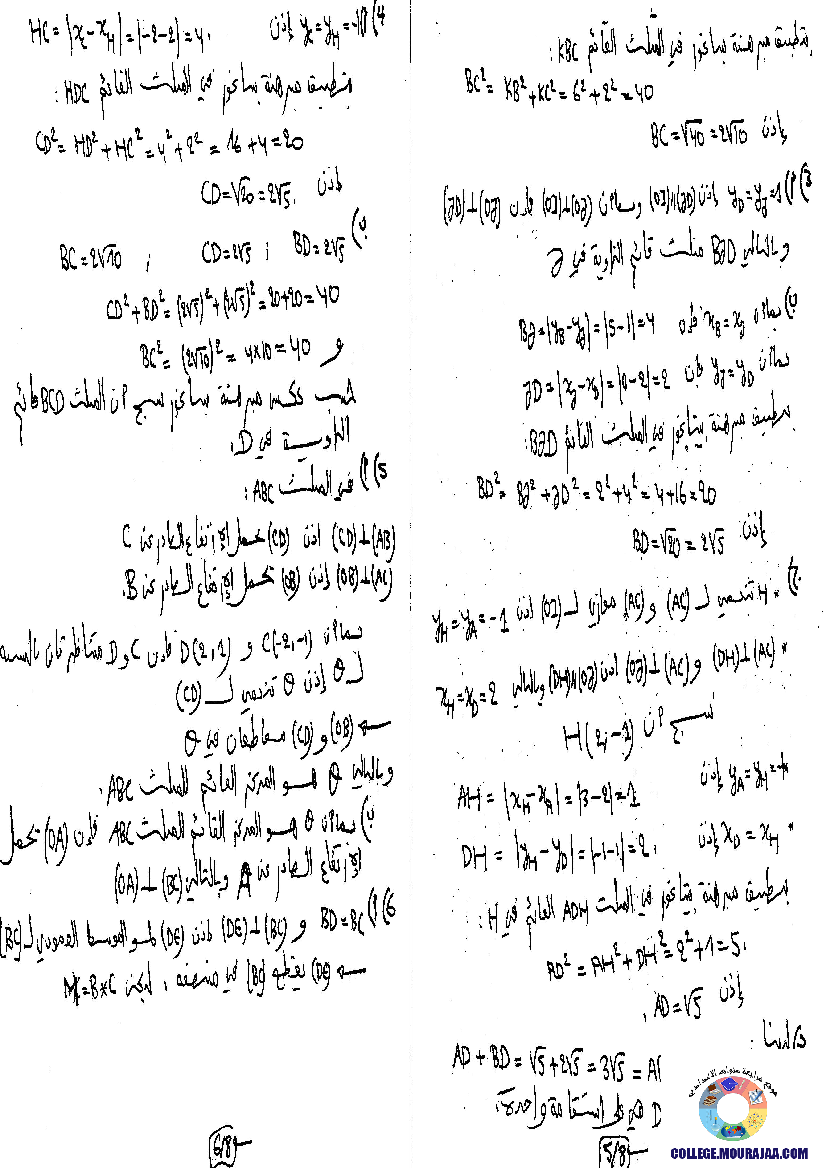 بتطبيق مبرهنة بيتاغور في المثلث القائم KBC:
BC² = KB² + KC² = 6² + 2² = 40
إذن BC = √40 = 2√10
3) أ) y_D = y_J = 1 إذن (JD)//(OI) وبما أن (OJ)⊥(OI) فإن (OJ)⊥(JD)
وبالتالي BJD مثلث قائم الزاوية في J
ب) بما أن x_B = x_J فإن BJ = |y_B - y_J| = |5-1| = 4
بما أن y_J = y_D فإن JD = |x_J - x_D| = |0-2| = 2
بتطبيق مبرهنة بيتاغور في المثلث القائم BJD:
BD² = BJ² + JD² = 2² + 4² = 4+16 = 20
إذن BD = √20 = 2√5
ج) * H تنتمي لـ (AC) و (AC) موازي لـ (OI) إذن y_H = y_A = -1
* (AC)⊥(DH) و (AC)⊥(OJ) إذن (OJ)//(DH) وبالتالي x_H = x_D = 2
نستنتج أن H(2,-1)
y_A = y_H = -1 إذن AH = |x_H - x_A| = |3-2| = 1
* x_D = x_H إذن DH = |y_H - y_D| = |-1-1| = 2.
بتطبيق مبرهنة بيتاغور في المثلث ADH القائم في H:
AD² = AH² + DH² = 2² + 1 = 5.
إذن AD = √5,
لدينا:
AD + BD = √5 + 2√5 = 3√5 = A
D هي على استقامة واحدة.
5/8
COLLEGE.MOURAJAA.COM
4) أ) y_C = y_H = -1 إذن HC = |x_C - x_H| = |-2-2| = 4.
بتطبيق مبرهنة بيتاغور في المثلث القائم HDC:
CD² = HD² + HC² = 4² + 2² = 16 + 4 = 20
إذن CD = √20 = 2√5.
ب)
BD = 2√5 ; CD = 2√5 ; BC = 2√10
CD² + BD² = (2√5)² + (2√5)² = 20+20 = 40
و BC² = (2√10)² = 4×10 = 40
حسب عكس مبرهنة بيتاغور نستنتج أن المثلث BCD قائم
الزاوية في D.
5) أ) في المثلث ABC:
(AB)⊥(CD) إذن (CD) يحمل الإرتفاع الصادر عن C
(AC)⊥(OB) إذن (OB) يحمل الإرتفاع الصادر عن B.
بما أن C(-2,-1) و D(2,1) فإن C و D متناظرتان بالنسبة
لـ O إذن O تنتمي لـ (CD)
(OB) و (CD) متقاطعان في O
وبالتالي O هو المركز القائم للمثلث ABC.
ب) بما أن O هو المركز القائم للمثلث ABC فإن (OA) يحمل
الإرتفاع الصادر عن A وبالتالي (BC)⊥(OA)
6) أ) BD = BC و (BC)⊥(DE) إذن (DE) هو الموسط العمودي لـ [BC]
(DE) يقطع [BC] في منتصفه. ليكن M = B*C
6/8